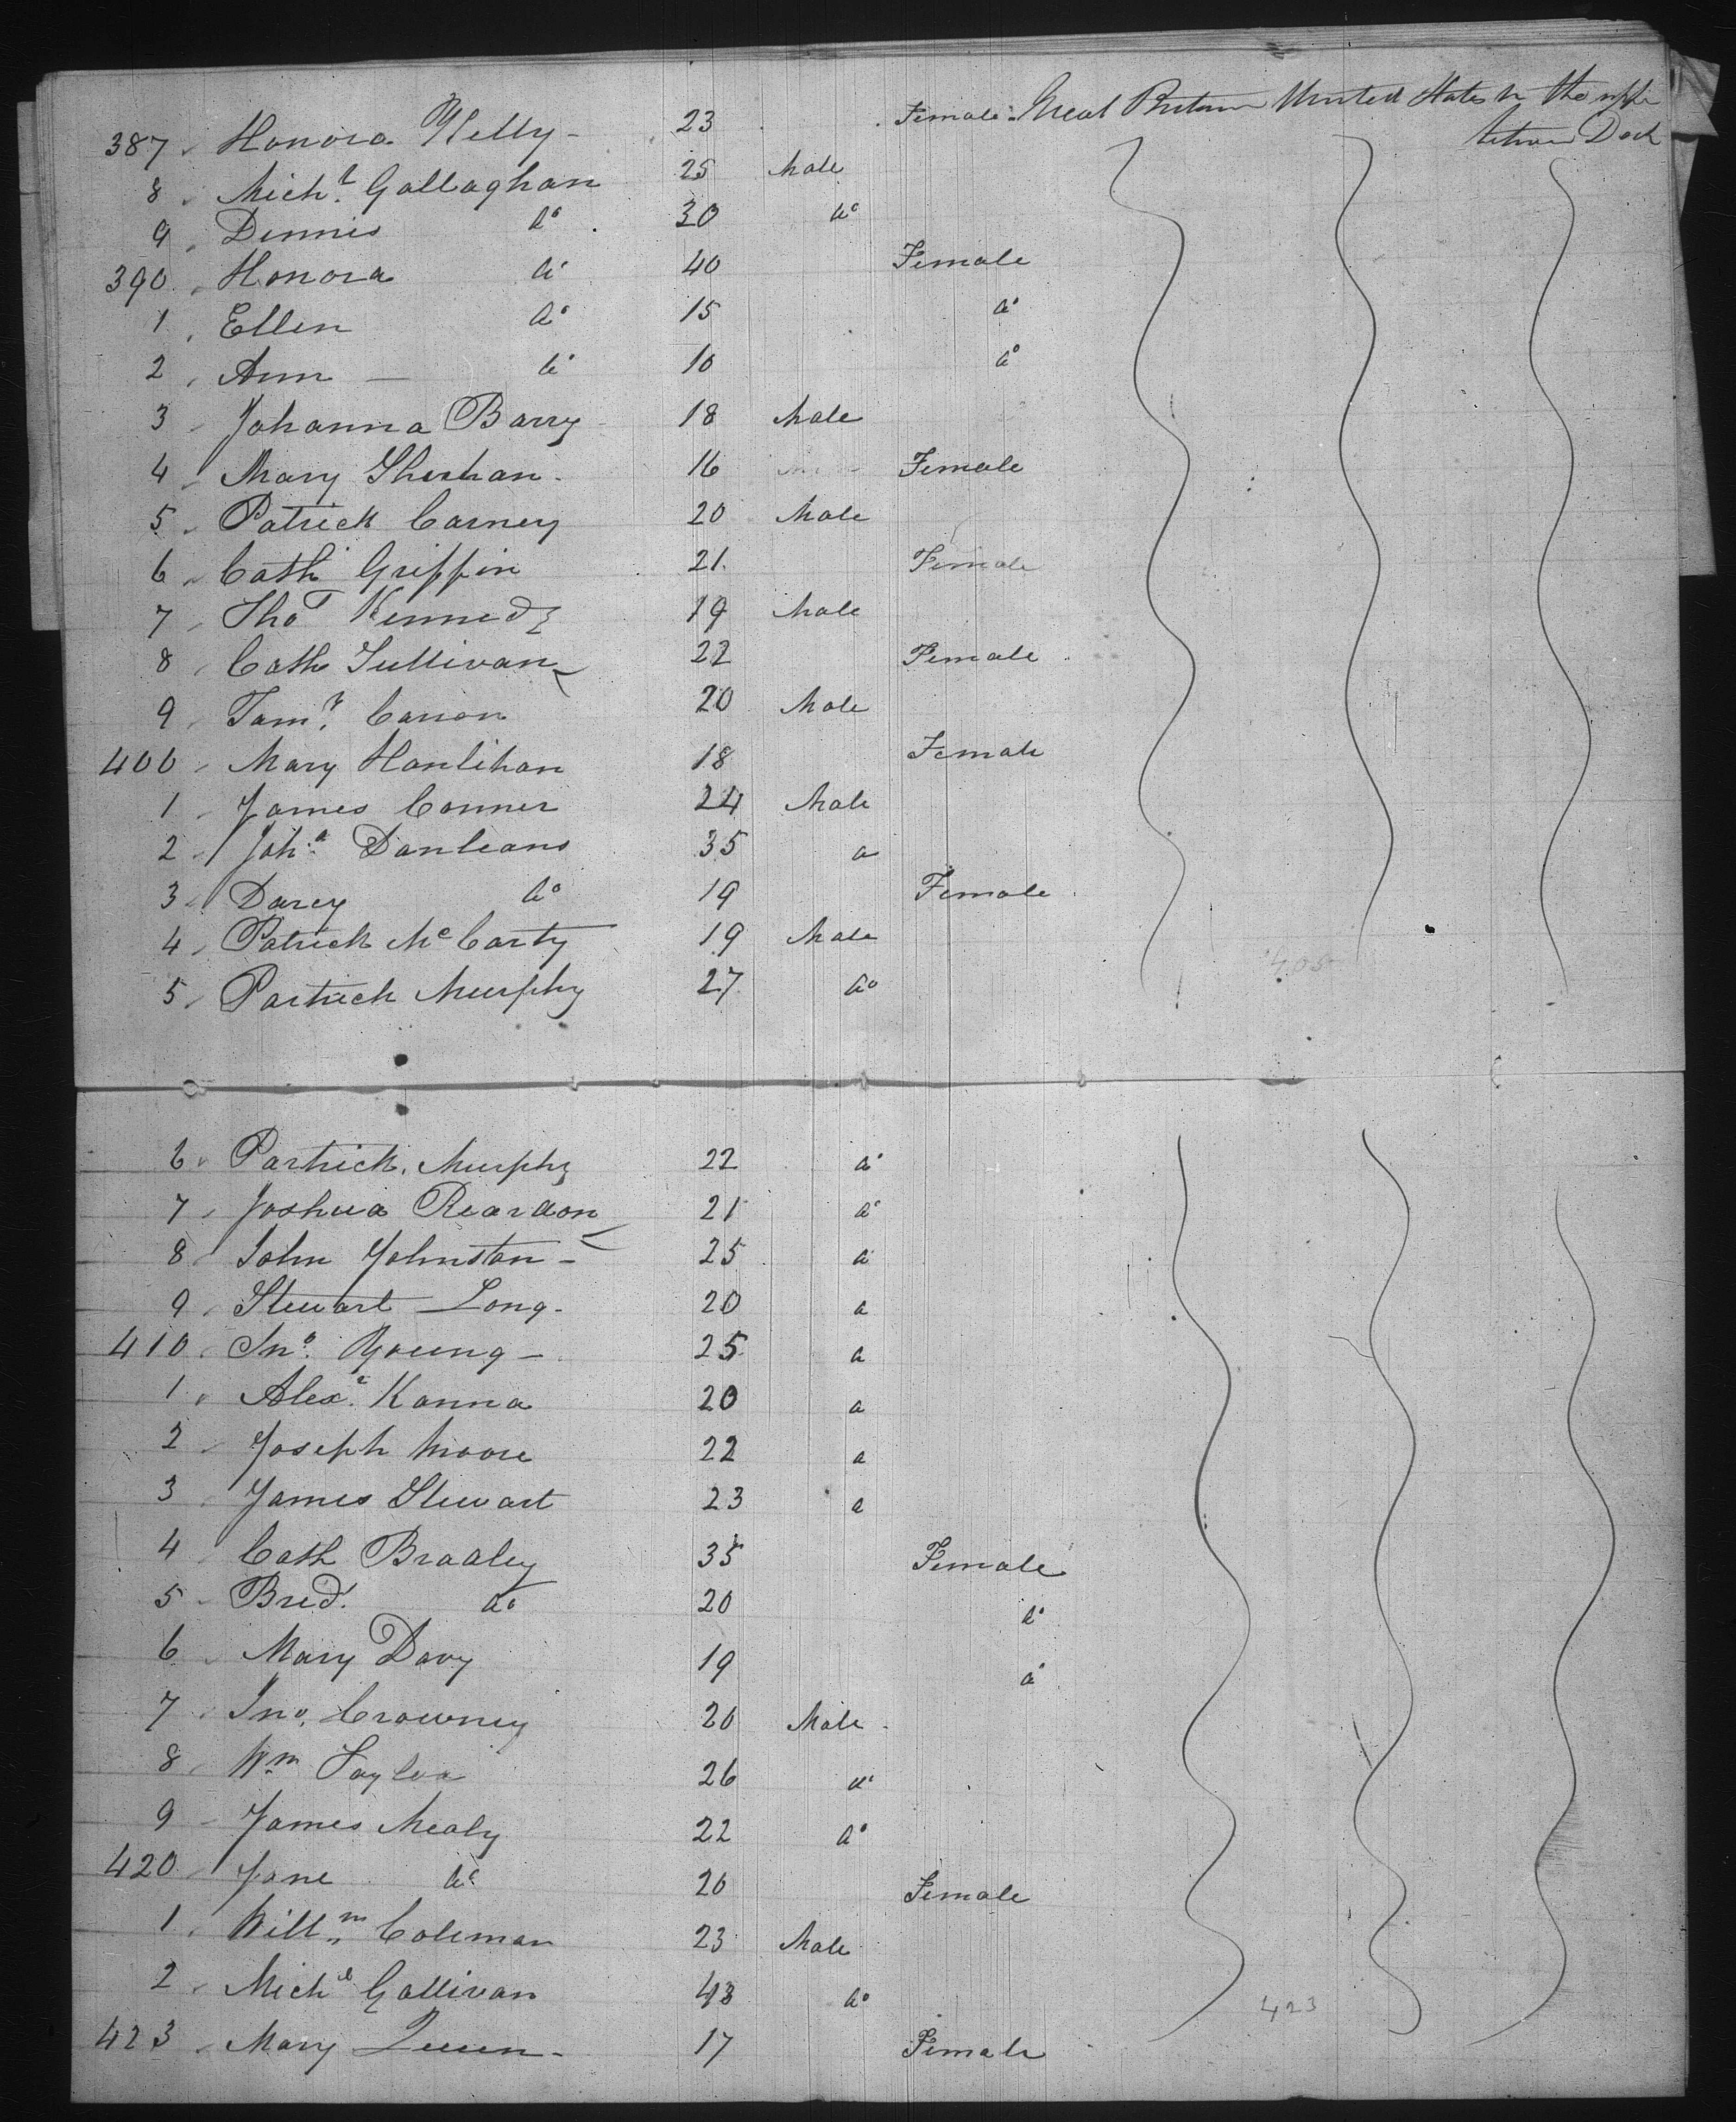 387 Honora Kelly - 23 Female Great Britain United States In the upper
between Deck
8 Mich.l Gallaghan 25 Male
9 Dennis do 30 do
390 Honora do 40 Female
1 Ellen do 15 do
2 Ann — do 10 do
3 Johanna Barry 18 Male
4 Mary Sheehan - 16 Female
5 Patrick Carney 20 Male
6 Cath Griffin 21 Female
7 Tho Kennedy 19 Male
8 Cath Sullivan 22 Female
9 Canon 20 Male
400 Mary Hanlihan 18 Female
1 James Conner 24 Male
2 Joh.a Danleans 35 do
3 Darcy do 19 Female
4 Patrick McCarty 19 Male
5 Partrick Murphy 27 do
405
6 Partrick Murphy 22 do
7 Joshua Reardon 21 do
8 John Johnston - 25 do
9 Stewart Long - 20 do
410 Jno. Young - 25 do
1 Alex.r Kanna 20 do
2 Joseph Moore 22 do
3 James Stewart 23 do
4 Cath Bradley 35 Female
5 Brid. do 20 do
6 Mary Davy 19 do
7 Jno. Crowney 20 Male
8 Wm Taylor 26 do
9 James Mealy 22 do
420 Jane do 20 Female
1 Will.m Coleman 23 Male
2 Mich.l Gallivan 43 do
423
423 Mary Queen - 17 Female